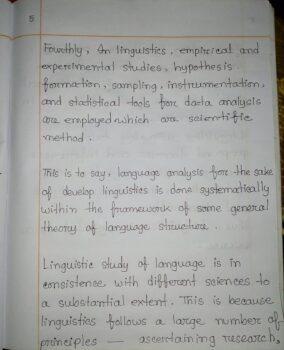 5
Fourthly, In linguistics, empirical and
experimental studies, hypothesis
formation, sampling, instrumentation,
and statistical tools for data analysis
are employed which are scientific
method.
This is to say, language analysis for the sake
of develop linguistics is done systematically
within the framework of some general
theory of language structure.
Linguistic study of language is in
consistence with different sciences to
a substantial extent. This is because
linguistics follows a large number of
principles — ascertaining research,